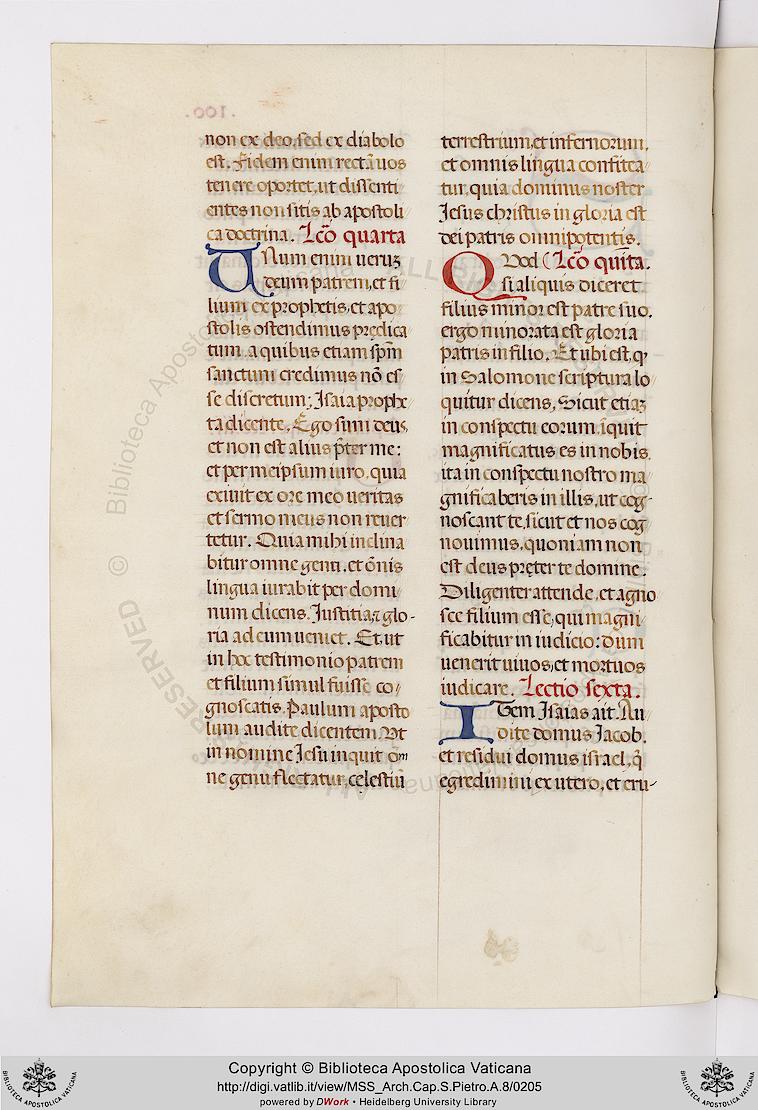 .100.
non ex deo, sed ex diabolo
est. Fidem enim rectā uos
tenere oportet, ut dissenti
entes non sitis ab apostoli
ca doctrina. Lcō quarta
UNum enim ueruȝ
deum patrem, et fi
lium ex prophetis, et apo
stolis ostendimus predica
tum. a quibus etiam sp̄m
sanctum credimus nō es
se discretum; Isaia prophe
ta dicente. Ego sum deus,
et non est alius p̄ter me:
et per meipsum iuro, quia
exiuit ex ore meo ueritas
et sermo meus non reuer
tetur. Quia mihi inclina
bitur omne genu. et ōnis
lingua iurabit per domi
num dicens. Iustitia, ⁊ glo-
ria ad eum ueniet. Et ut
in hoc testimonio patrem
et filium simul fuisse co
gnoscatis. Paulum aposto
lum audite dicentem. Ut
in nomine Iesu inquit om
ne genu flectatur, cęlestiū
terrestrium, et infernorum,
et omnis lingua confitea
tur, quia dominus noster
Iesus christus in gloria est
dei patris omnipotentis.
QUod (Lcō quīta.
si aliquis diceret
filius minor est patre suo.
ergo minorata est gloria
patris in filio. Et ubi est, q
in Salomone scriptura lo
quitur dicens, Sicut etiaȝ
in conspectu eorum, īquit
magnificatus es in nobis.
ita in conspectu nostro ma
gnificaberis in illis, ut cog-
noscant te, sicut et nos cog
nouimus, quoniam non
est deus pręter te domine.
Diligenter attende, et agno
sce filium esse, qui magni
ficabitur in iudicio: dum
uenerit uiuos, et mortuos
iudicare. Lectio sexta.
ITem Isaias ait. Au
dite domus Iacob.
et residui domus israel, q̄
egredimini ex utero, et eru-
© Biblioteca Apostolica Vaticana ALL RIGHTS RESERVED
Copyright © Biblioteca Apostolica Vaticana
http://digi.vatlib.it/view/MSS_Arch.Cap.S.Pietro.A.8/0205
powered by DWork • Heidelberg University Library
BIBLIOTECA APOSTOLICA VATICANA
BIBLIOTECA APOSTOLICA VATICANA